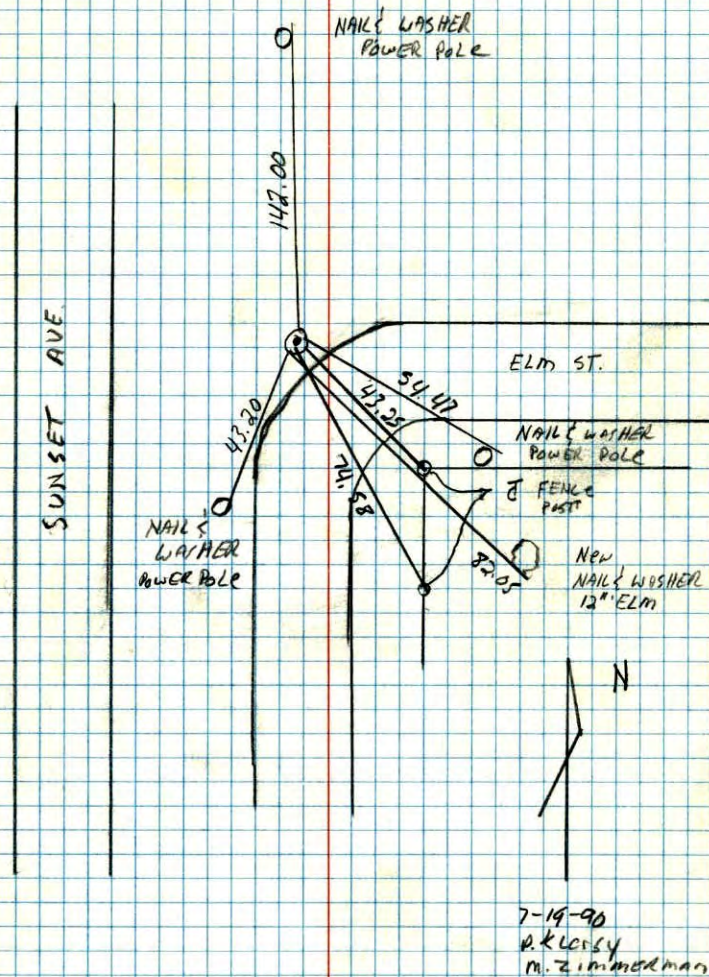 NAIL & WASHER
POWER POLE
142.00
SUNSET AVE.
ELM ST.
54.47
43.25
43.20
74.58
NAIL & WASHER
POWER POLE
FENCE
POST
NAIL &
WASHER
POWER POLE
82.05
NEW
NAIL & WASHER
12" ELM
N
7-19-90
M. ZIMMERMAN